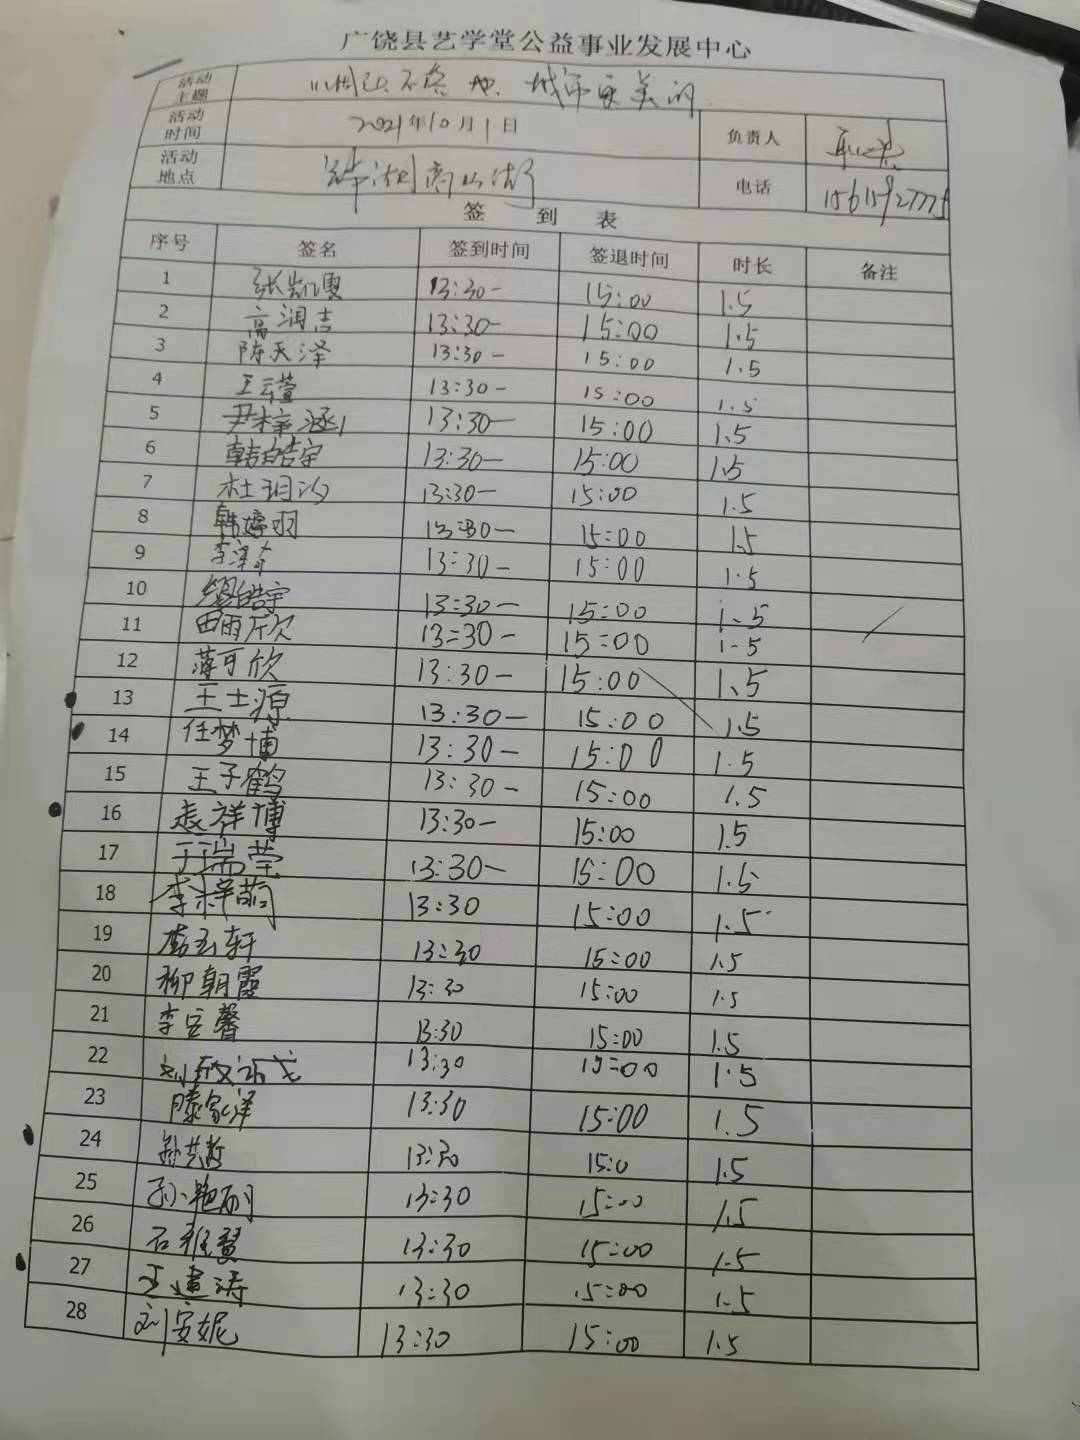 广饶县艺学堂公益事业发展中心
活动主题 烟头不落地 城市更美的
活动时间 2021年10月1日 负责人
活动地点 电话
签到表
序号 签名 签到时间 签退时间 时长 备注
1 张凯雯 13:30- 15:00 1.5
2 高润吉 13:30- 15:00 1.5
3 陈天泽 13:30- 15:00 1.5
4 王云萱 13:30- 15:00 1.5
5 尹梓涵 13:30- 15:00 1.5
6 韩皓宇 13:30- 15:00 1.5
7 杜玥汐 13:30- 15:00 1.5
8 韩婷羽 13:30- 15:00 1.5
9 13:30- 15:00 1.5
10 13:30- 15:00 1.5
11 田雨欣 13:30- 15:00 1.5
12 薄可欣 13:30- 15:00 1.5
13 王士源 13:30- 15:00 1.5
14 任梦博 13:30- 15:00 1.5
15 王子鹤 13:30- 15:00 1.5
16 袁祥博 13:30- 15:00 1.5
17 于瑞莹 13:30- 15:00 1.5
18 李梓萌 13:30 15:00 1.5
19 13:30 15:00 1.5
20 柳朝霞 13:30 15:00 1.5
21 李宜馨 13:30 15:00 1.5
22 13:30 15:00 1.5
23 滕家洋 13:30 15:00 1.5
24 13:30 15:0 1.5
25 孙艳丽 13:30 15:00 1.5
26 石雅慧 13:30 15:00 1.5
27 王建涛 13:30 15:00 1.5
28 刘安妮 13:30 15:00 1.5